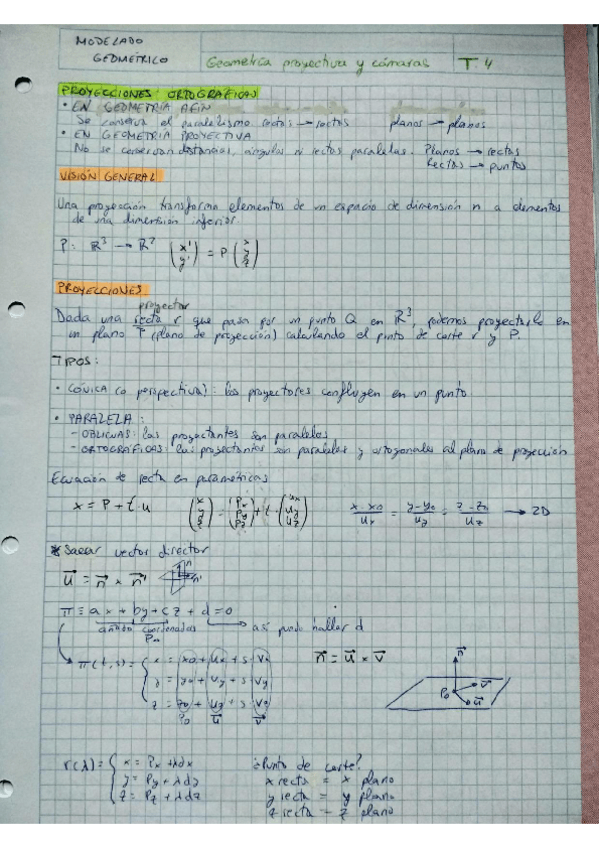 MODELADO
GEOMÉTRICO
Geometría proyectiva y cámaras T.4
PROYECCIONES ORTOGRÁFICAS
• EN GEOMETRÍA AFÍN
Se conserva el paralelismo rectos → rectos planos → planos
• EN GEOMETRIA PROYECTIVA
No se conservan distancias, ángulos ni rectas paralelas. Planos → rectas
Rectas → puntos
VISIÓN GENERAL
Una proyección transforma elementos de un espacio de dimensión n a elementos
de una dimensión inferior.
P: ℝ³ → ℝ² (x' y') = P (x y z)
PROYECCIONES
proyector
Dada una recta r que pasa por un punto Q en ℝ³, podemos proyectarlo en
un plano π (plano de proyección) calculando el punto de corte r y P.
TIPOS:
• CÓNICA (o perspectiva): los proyectores confluyen en un punto
• PARALELA:
- OBLICUAS: las proyectantes son paralelas
- ORTOGRÁFICAS: las proyectantes son paralelas y ortogonales al plano de proyección
Ecuación de recta en paramétricas
x = P + t · u (x y z) = (Px Py Pz) + t · (ux uy uz) x - x0 / ux = y - y0 / uy = z - z0 / uz → 2D
* Sacar vector director
u = n × n' n n'
π ≡ ax + by + cz + d = 0
añado coordenadas así puedo hallar d
P0
π(t,s) = { x = x0 + ux + s · vx n = u × v n
y = y0 + uy + s · vy v
z = z0 + uz + s · vz P0 u
P0 u v
r(λ) = { x = Px + λdx ¿Punto de corte?
y = Py + λdy x recta = x plano
z = Pz + λdz y recta = y plano
z recta = z plano